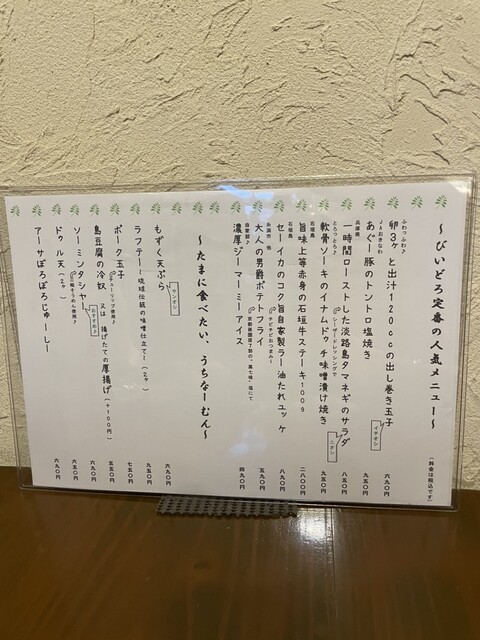 ～びいどろ定番の人気メニュー～
（料金は税込です）
ふわっふわ♪
卵3ヶと出汁120ccの出し巻き玉子
イチオシ
六九〇円
JAおきなわ
あぐー豚のトントロ塩焼き
九五〇円
兵庫県
一時間ローストした淡路島タマネギのサラダ
シーザードレッシングで
八五〇円
とろっとろ♪
軟骨ソーキのイナムドゥチ味噌漬け焼き
ニオシ
九五〇円
石垣島
旨味上等赤身の石垣牛ステーキ100g
二八〇〇円
石垣島
セーイカのコク旨自家製ラー油たれユッケ
八九〇円
大人の男爵ポテトフライ
チビチビおつまみ～
京都祇園原了郭の、黒七味、塩にて
五九〇円
自家製♪
濃厚ジーマーミーアイス
四九〇円
～たまに食べたい、うちなーむん～
もずく天ぷら
サンオシ
六九〇円
ラフテー～琉球伝統の味噌仕立て～（2ヶ）
九五〇円
ポーク玉子
チューリップ使用♪
七五〇円
島豆腐の冷奴 又は 揚げたての厚揚げ（+100円）
五五〇円
ソーミンタシヤー
おすすめ♪
六九〇円
ドゥル天（2ヶ）
六五〇円
アーサぼろぼろじゅーしー
六九〇円